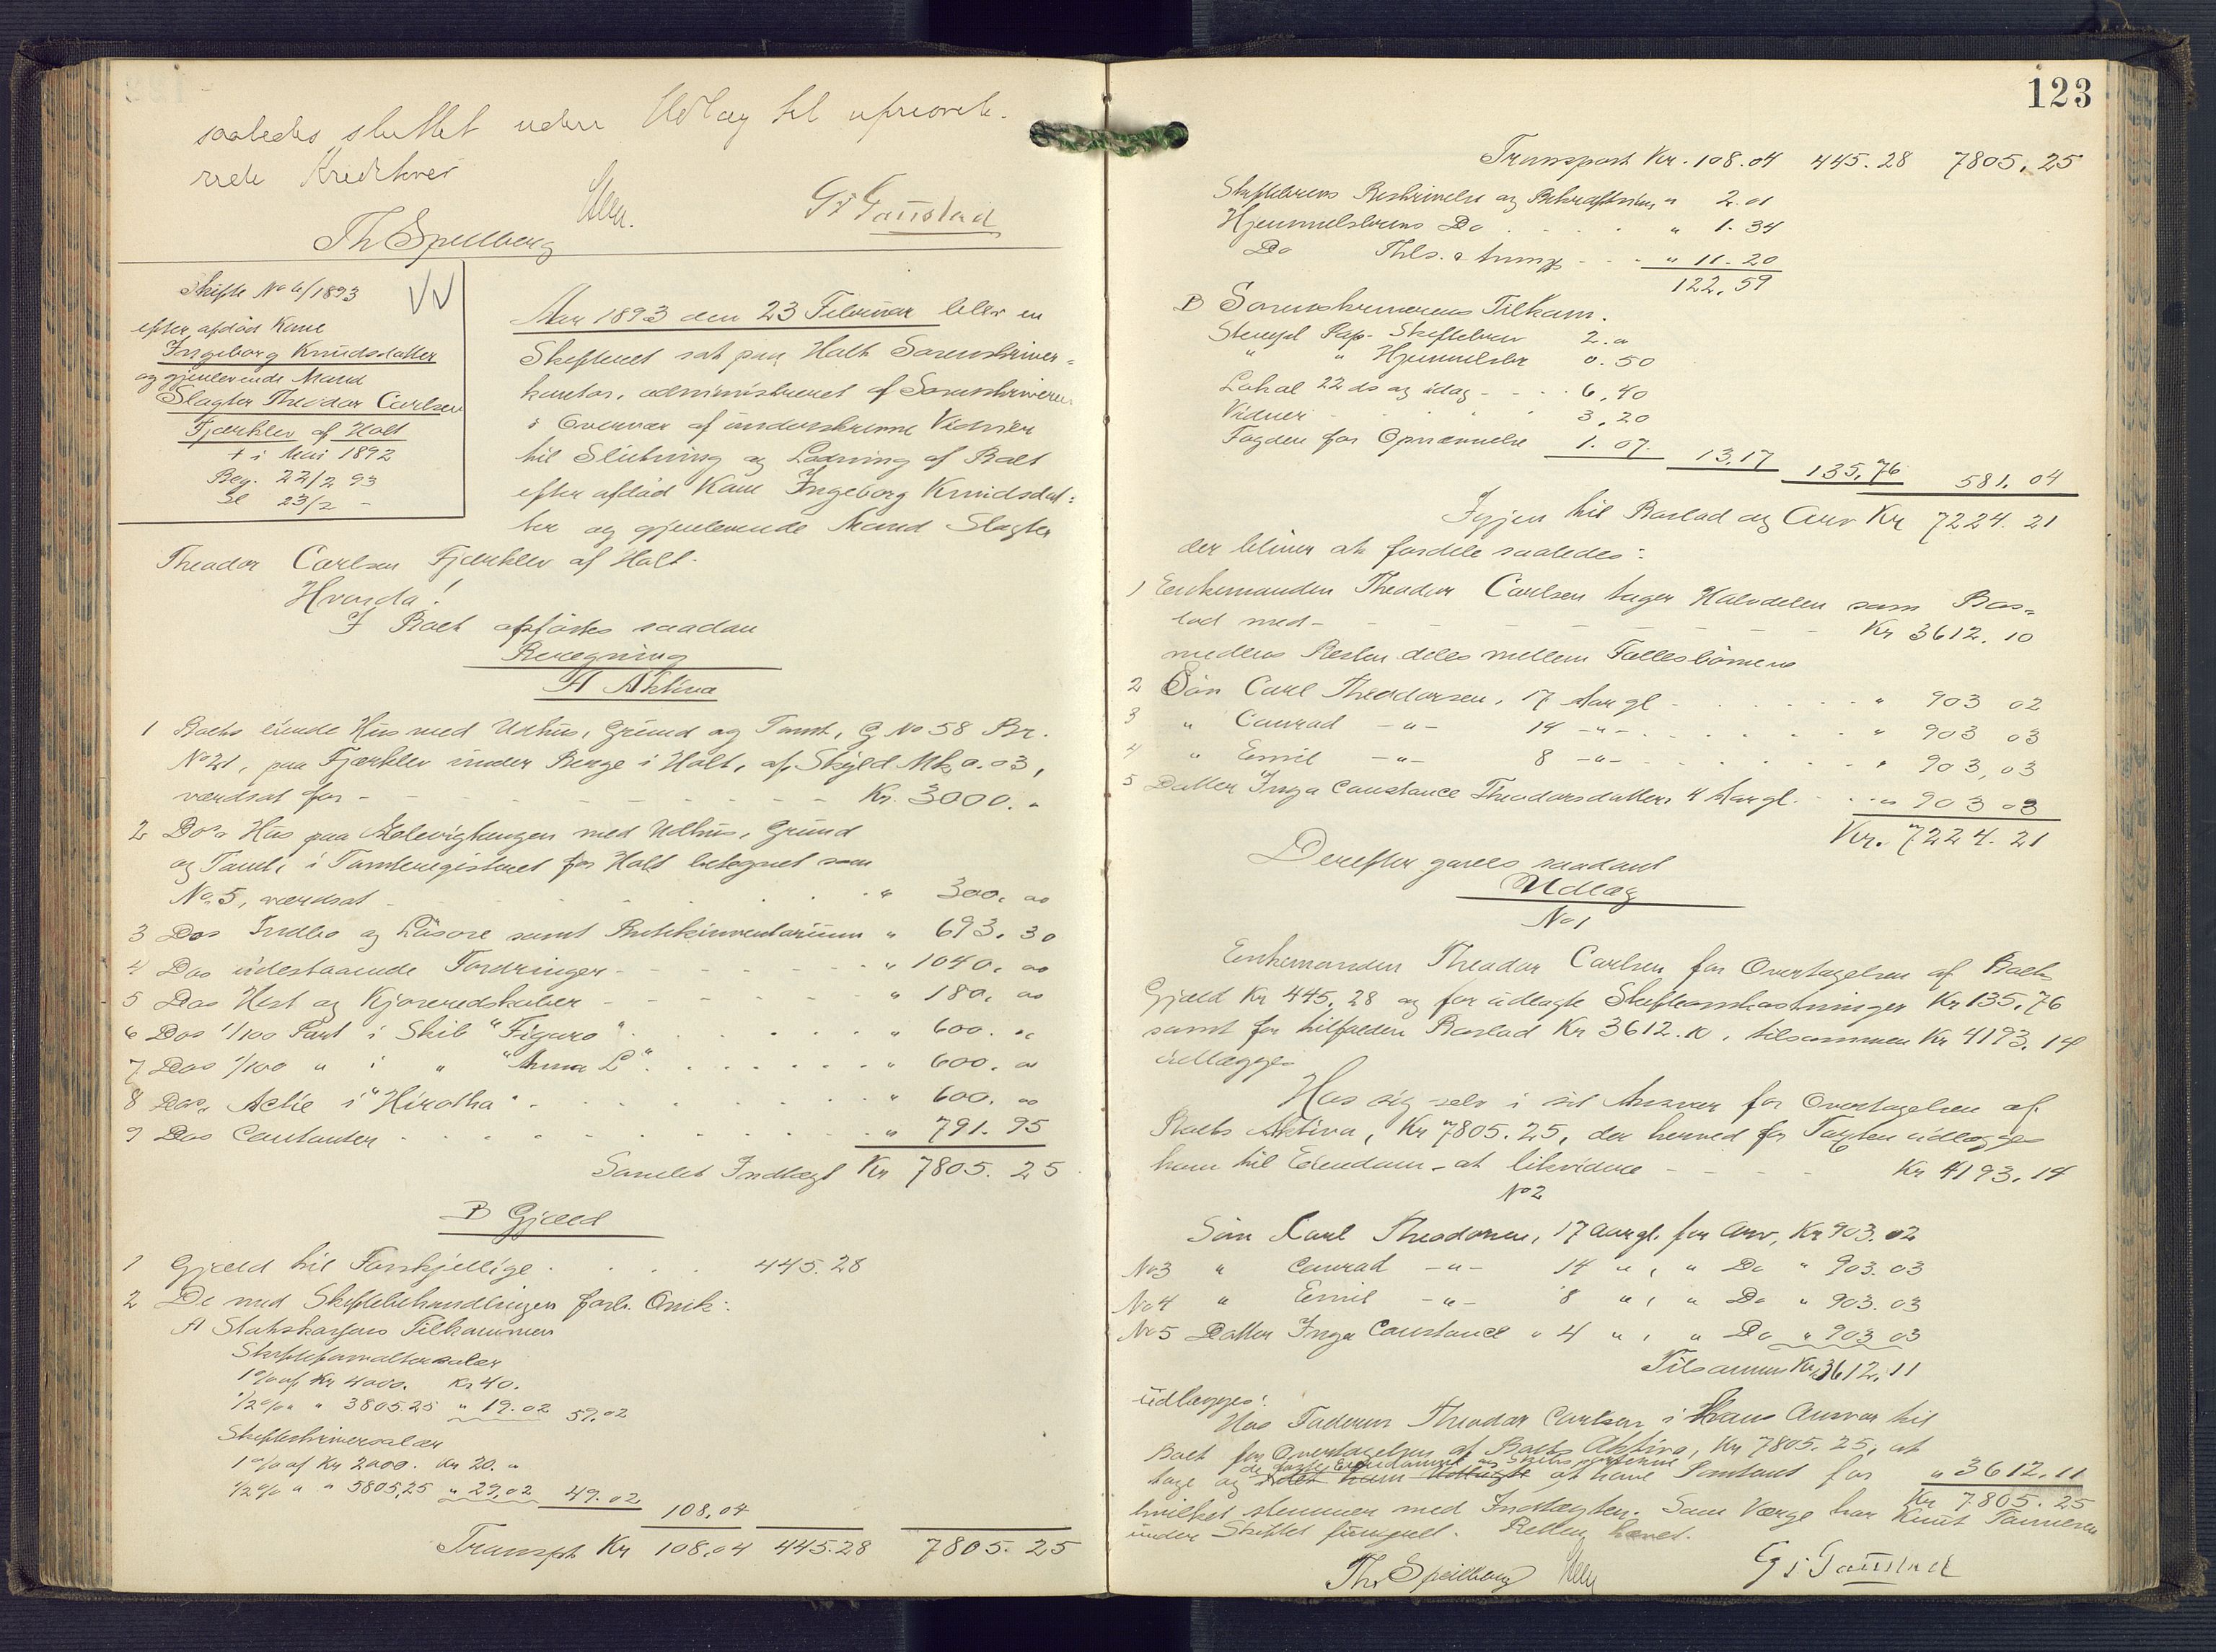 saaledes sluttet uden Udlæg til upriorite-
rede Kreditorer
Th Spellberg
G. Taustad
Skifte No 6/1893
efter afdød Kone
Ingeborg Knudsdatter
og gjenlevende Mand
Slagter Theodor Carlsen
Fjærklev af Holt
† i Mai 1892
Beg. 22/2 93
Sl 23/2 -
Aar 1893 den 23 Februar blev en
Skifteret sat paa Holt Sorenskriver-
kontor, administreret af Sorenskriveren
i Overvær af underskrevne Vidner
til Slutning og Lodning af Boet
efter afdød Kone Ingeborg Knudsdat-
ter og gjenlevende Mand Slagter
Theodor Carlsen Fjærklev af Holt.
Hvorda!
I Boet opførtes saadan
Beregning
A Aktiva
1 Boets eiende Hus med Udhus, Grund og Tomt, G No 58 Br.
No 21, paa Fjærklev under Berge i Holt, af Skyld Mk 0.03,
værdsat for - Kr. 3000. "
2 Dos Hus paa med Udhus, Grund
og Tomt, i Tomteregisteret for Holt betegnet som
No 5, værdsat " 300. 00
3 Dos Indbo og Løsøre samt Butikinventarium " 693. 30
4 Dos udestaaende Fordringer - " 1040. 00
5 Dos Hest og Kjøreredskaber - " 180. 00
6 Dos 1/100 Part i Skib "Figaro" " 600. 00
7 Dos 1/100 " i " "Anna L" " 600. 00
8 Dos Actie i "Hirotha" " 600. 00
9 Dos Contanter " 791. 95
Samlet Indtægt Kr 7805. 25
B Gjæld
1 Gjæld til Forskjellige 445.28
2 De med Skiftebehandlingen forb. Omk:
A Statskassens Tilkommen
Skifteforvaltersalær
1 % af Kr 4000. Kr 40.
1/2 % " " 3805.25 " 19.02 59.02
Skifteskriversalær
1 % af Kr 2000. Kr 20. "
1/2 % " " 5805,25 " 29,02 49.02
108.04
Transpt Kr 108.04 445.28 7805. 25
123
Transport Kr. 108.04 445.28 7805, 25
Skiftebrevs Beskrivelse og Bekræftning " 2.01
Hjemmelsbrevs Do " 1.34
Do Thls. " 11.20
122.59
B Sorenskriverens Tilkom.
Stempl Pap. Skiftebrev 2. "
" " Hjemmelsbr 0.50
Lokal 22 ds og idag 6,40
Vidner 3,20
Fogden for Opnævnelse 1.07 13,17 135,76 581. 04
Igjen til Boslod og Arv Kr 7224. 21
der bliver at fordele saaledes:
1 Enkemanden Theodor Carlsen tager Halvdelen som Bos-
lod med - Kr 3612. 10
medens Resten deles mellem Fællesbørnene
2 Søn Carl Theodorsen, 17 Aar gl - " 903 02
3 " Conrad -"- 14 -"- " 903 03
4 " Emil -"- 8 -"- " 903,03
5 Datter Inga Constance Theodorsdatter 4 Aar gl. " 903 03
Kr. 7224. 21
Derefter gjøres saadant
Udlæg
No 1
Enkemanden Theodor Carlsen for Overtagelsen af Boets
Gjæld Kr 445,28 og for udlagte Skifteomkostninger Kr 135,76
samt for tilfalden Boslod Kr 3612.10, tilsammen Kr 4193.14
udlægges
Hos sig selv i sit Ansvar for Overtagelsen af
Boets Aktiva, Kr 7805.25, der herved for Taxten udlægges
ham til Eiendom - at likvidere - Kr 4193.14
No 2
Søn Carl Theodorsen, 17 Aar gl. for Arv, Kr 903.02
No 3 " Conrad -"- 14 " , " Do " 903.03
No 4 " Emil -"- 8 " , " Do " 903.03
No 5 Datter Inga Constance " 4 " , " Do " 903 03
Tilsammen Kr. 3612.11
udlægges:
Hos Faderen Theodor Carlsen i Hans Ansvar til
Boet for Overtagelsen af Boets Aktiva, Kr 7805.25, at
de faste Eiendomme og Skibsparterne
tage og at have Pantant for " 3612.11
Kr 7805.25
hvilket stemmer med Indtægten. Som Værge har Knut Tønnesen
under Skiftet fungeret. Retten hævet.
Th Spellberg
G. Taustad